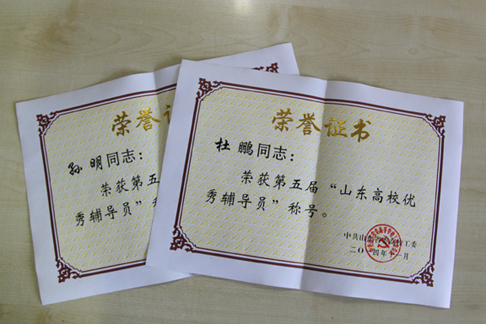 荣誉证
孙 明同志：
荣获第五
秀辅导员”称
荣誉证书
杜 鹏同志：
荣获第五届“山东高校优
秀辅导员”称号。
中共山东
工委
二〇一四年十一月